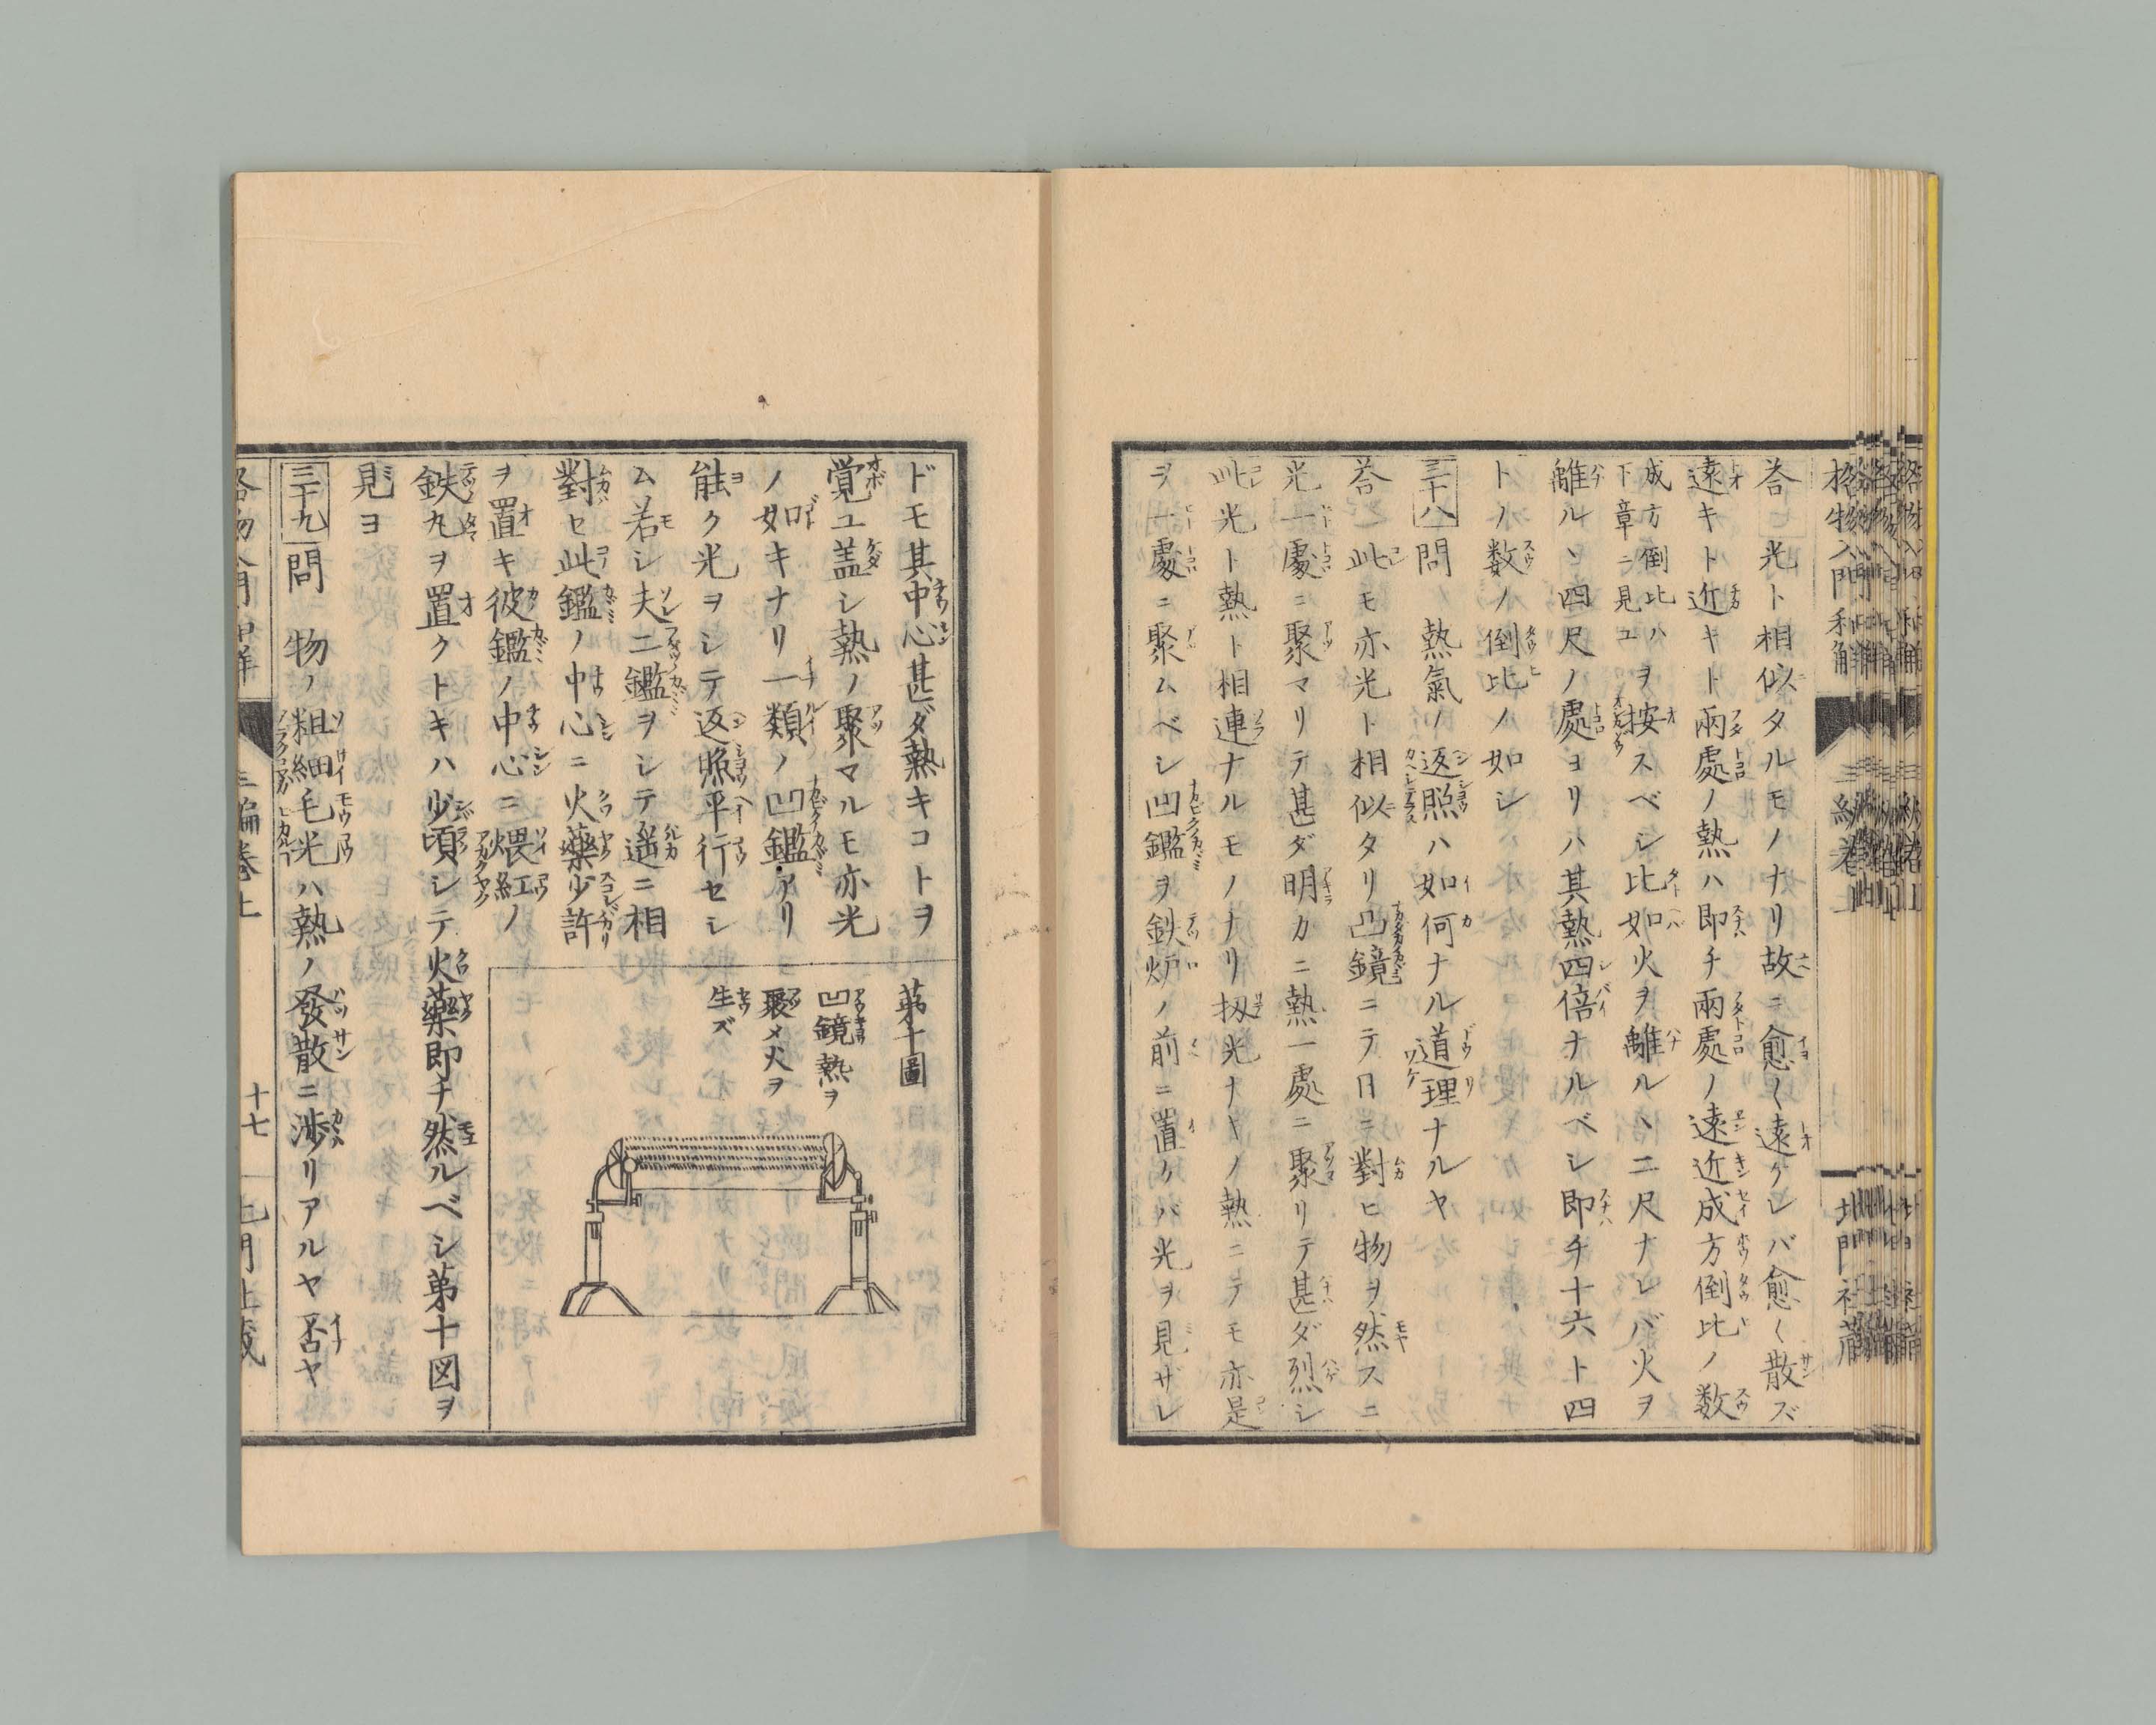 答 光ト相似タルモノナリ故ニ愈〱遠ケレバ愈〱散ズ
遠キト近キト兩處ノ熱ハ即チ兩處ノ遠近成方倒比ノ数
成方倒比ハ
下章ニ見ユ
ヲ按スベシ比如火ヲ離ルヽ二尺ナレバ火ヲ
離ルヽ四尺ノ處ヨリハ其熱四倍ナルベシ即チ十六ト四
トノ数ノ倒比ノ如シ
三十八問 熱氣ノ返照ハ如何ナル道理ナルヤ
答 此モ亦光ト相似タリ凹鏡ニテ日ニ對ヒ物ヲ然スニ
光一處ニ聚マリテ甚ダ明カニ熱一處ニ聚リテ甚ダ烈シ
此光ト熱ト相連ナルモノナリ扨光ナキノ熱ニテモ亦是
ヲ一處ニ聚ムベシ凹鑑ヲ鉄炉ノ前ニ置ケバ光ヲ見ザレ
格物入門和解
北門社蔵
ドモ其中心甚ダ熱キコトヲ
覚ユ盖シ熱ノ聚マルモ亦光
ノ如キナリ一類ノ凹鑑アリ
能ク光ヲシテ返照平行セシ
ム若シ夫二鑑ヲシテ遥ニ相
對セ此鑑ノ中心ニ火藥少許
ヲ置キ彼鑑ノ中心ニ煨紅ノ
鉄丸ヲ置クトキハ少頃シテ火藥即チ然ルベシ第十図ヲ
見ヨ
第十圖
凹鏡熱ヲ
聚メ火ヲ
生ズ
三十九問 物ノ粗細毛光ハ熱ノ發散ニ渉リアルヤ否ヤ
三編巻上
十七